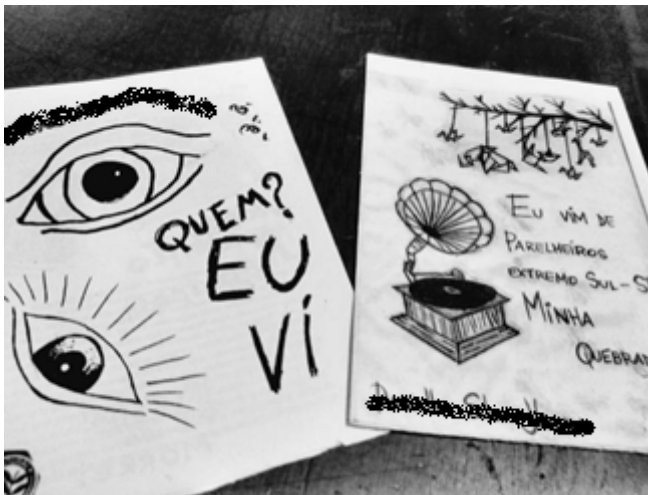 QUEM?
EU
VI
EU VIM DE
PARELHEIROS
EXTREMO SUL-S
MINHA
QUEBRAD